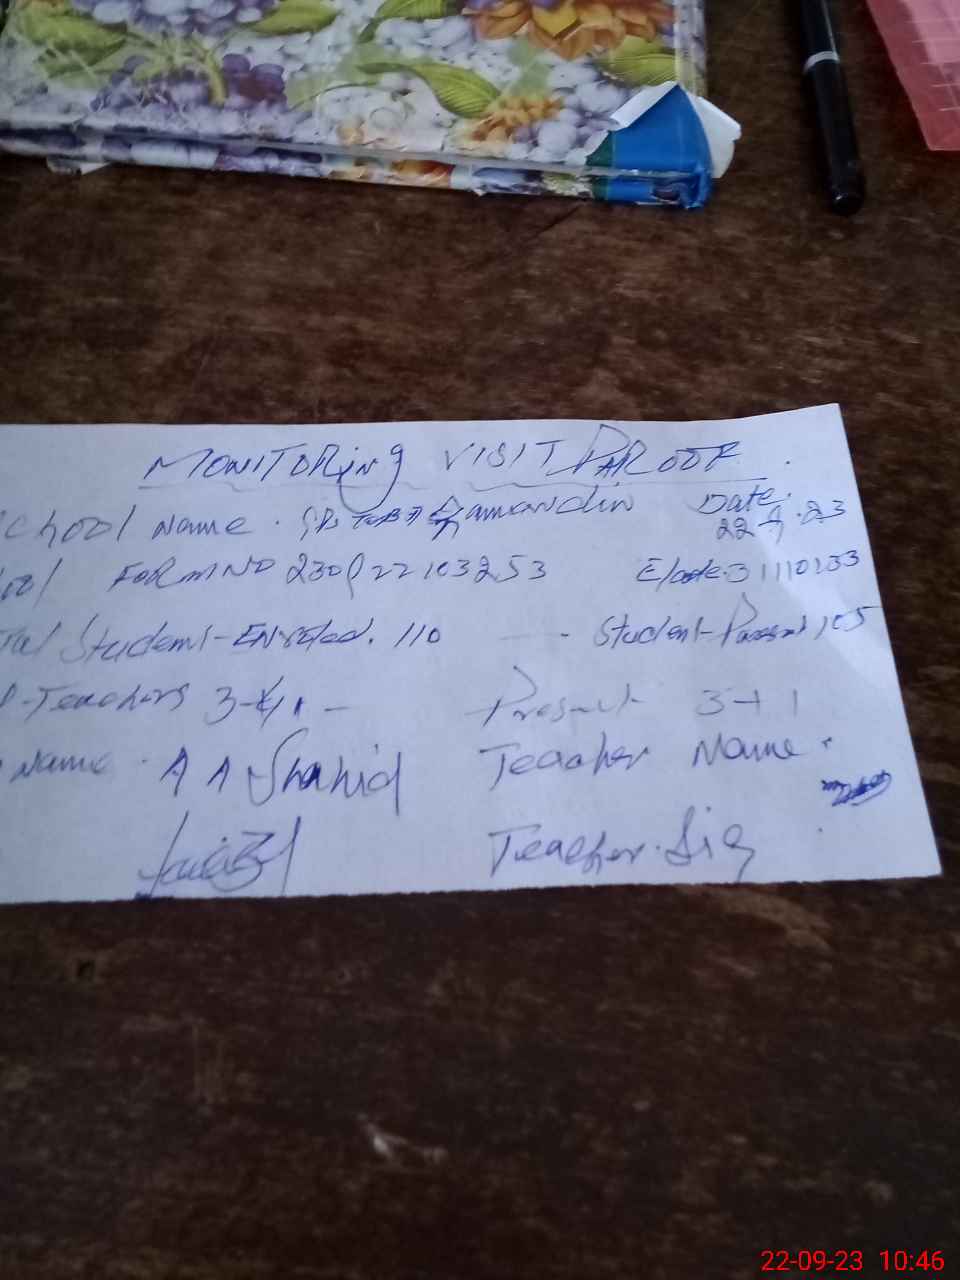 MONITORing VISIT PAROOF
chool Name.
Date:
22.9.23
ool FORM NO 230922103253
tal Student-Enroled. 110 Student-Pasent 105
-Teachers 3+1 - Present 3+1
Name. A A Shahid Teacher Name.
Teacher.Sig
22-09-23 10:46